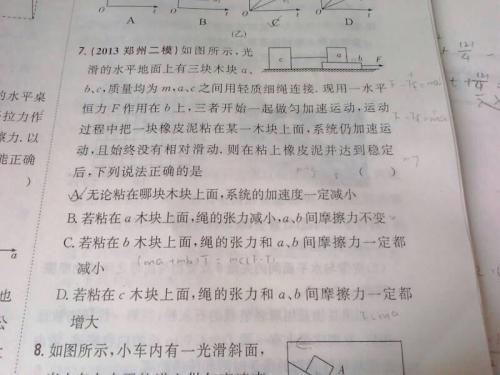 A B C D
(乙)
7. (2013 郑州二模) 如图所示,光
滑的水平地面上有三块木块 a、
b、c,质量均为 m,a、c 之间用轻质细绳连接. 现用一水平
恒力 F 作用在 b 上,三者开始一起做匀加速运动,运动
过程中把一块橡皮泥粘在某一木块上面,系统仍加速运
动,且始终没有相对滑动. 则在粘上橡皮泥并达到稳定
后,下列说法正确的是 ( )
A. 无论粘在哪块木块上面,系统的加速度一定减小
B. 若粘在 a 木块上面,绳的张力减小,a、b 间摩擦力不变
C. 若粘在 b 木块上面,绳的张力和 a、b 间摩擦力一定都
减小
D. 若粘在 c 木块上面,绳的张力和 a、b 间摩擦力一定都
增大
8. 如图所示,小车内有一光滑斜面,
c a b F
A
的水平桌
拉力作
擦力. 以
能正确
)
a
也
公